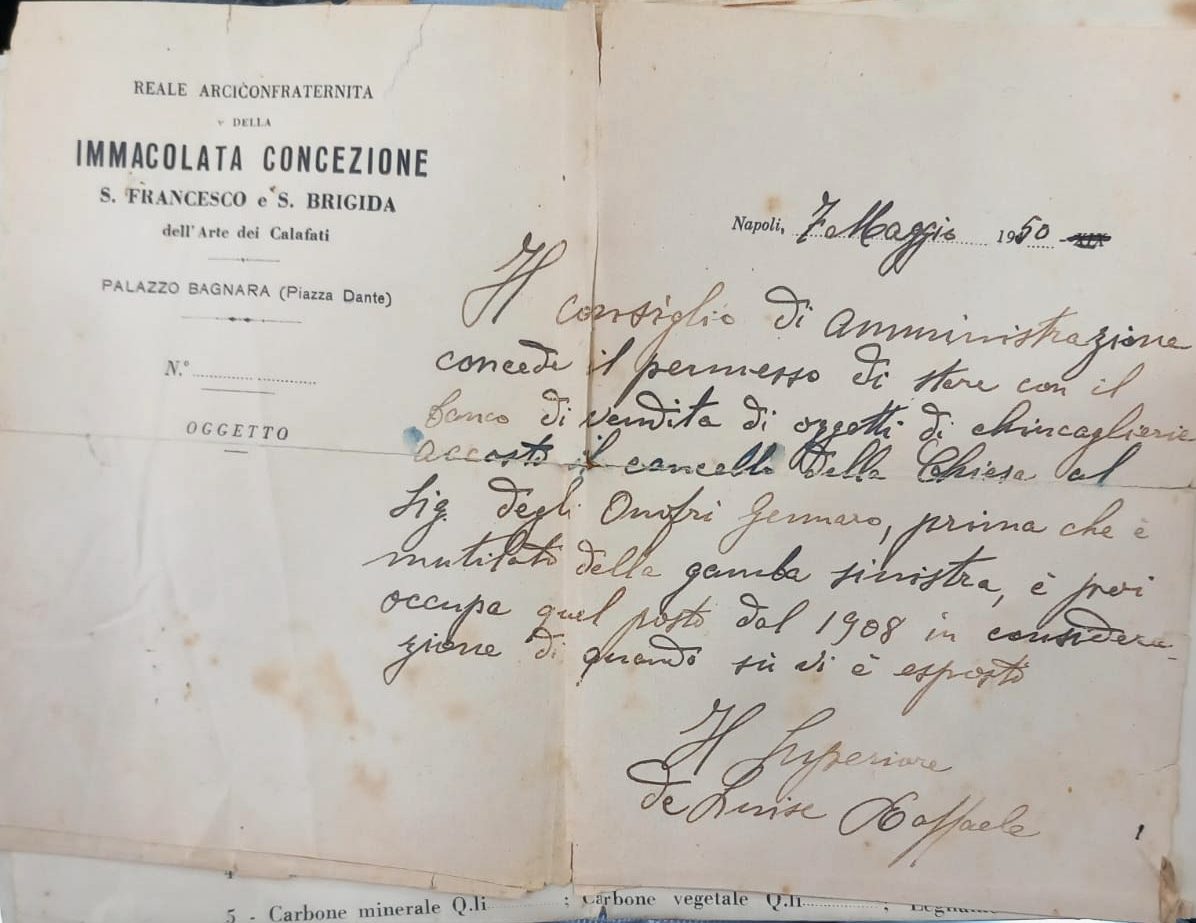 REALE ARCICONFRATERNITA
DELLA
IMMACOLATA CONCEZIONE
S. FRANCESCO e S. BRIGIDA
dell'Arte dei Calafati
PALAZZO BAGNARA (Piazza Dante)
N.°
OGGETTO
Napoli, 7 Maggio 1950
Il consiglio di amministrazione
concede il permesso di stare con il
banco di vendita di oggetti di chincaglierie
accosto il cancello della Chiesa al
Sig. degli Onofri Gennaro, prima che è
mutilato della gamba sinistra, è poi
occupa quel posto dal 1908 in considera-
zione di quando sù vi è esposto
Il Superiore
de Luise Raffaele
5 - Carbone minerale Q.li ; Carbone vegetale Q.li ;